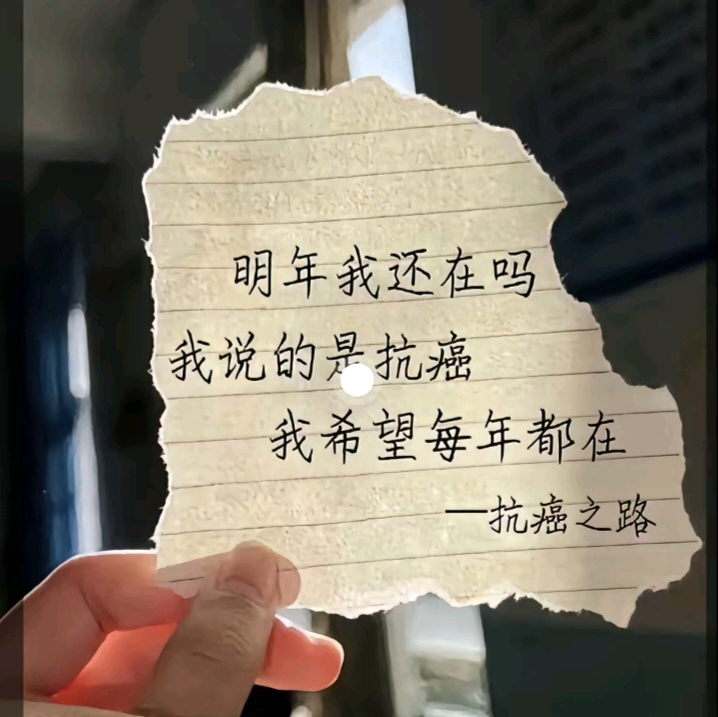 明年我还在吗
我说的是抗癌
我希望每年都在
—抗癌之路